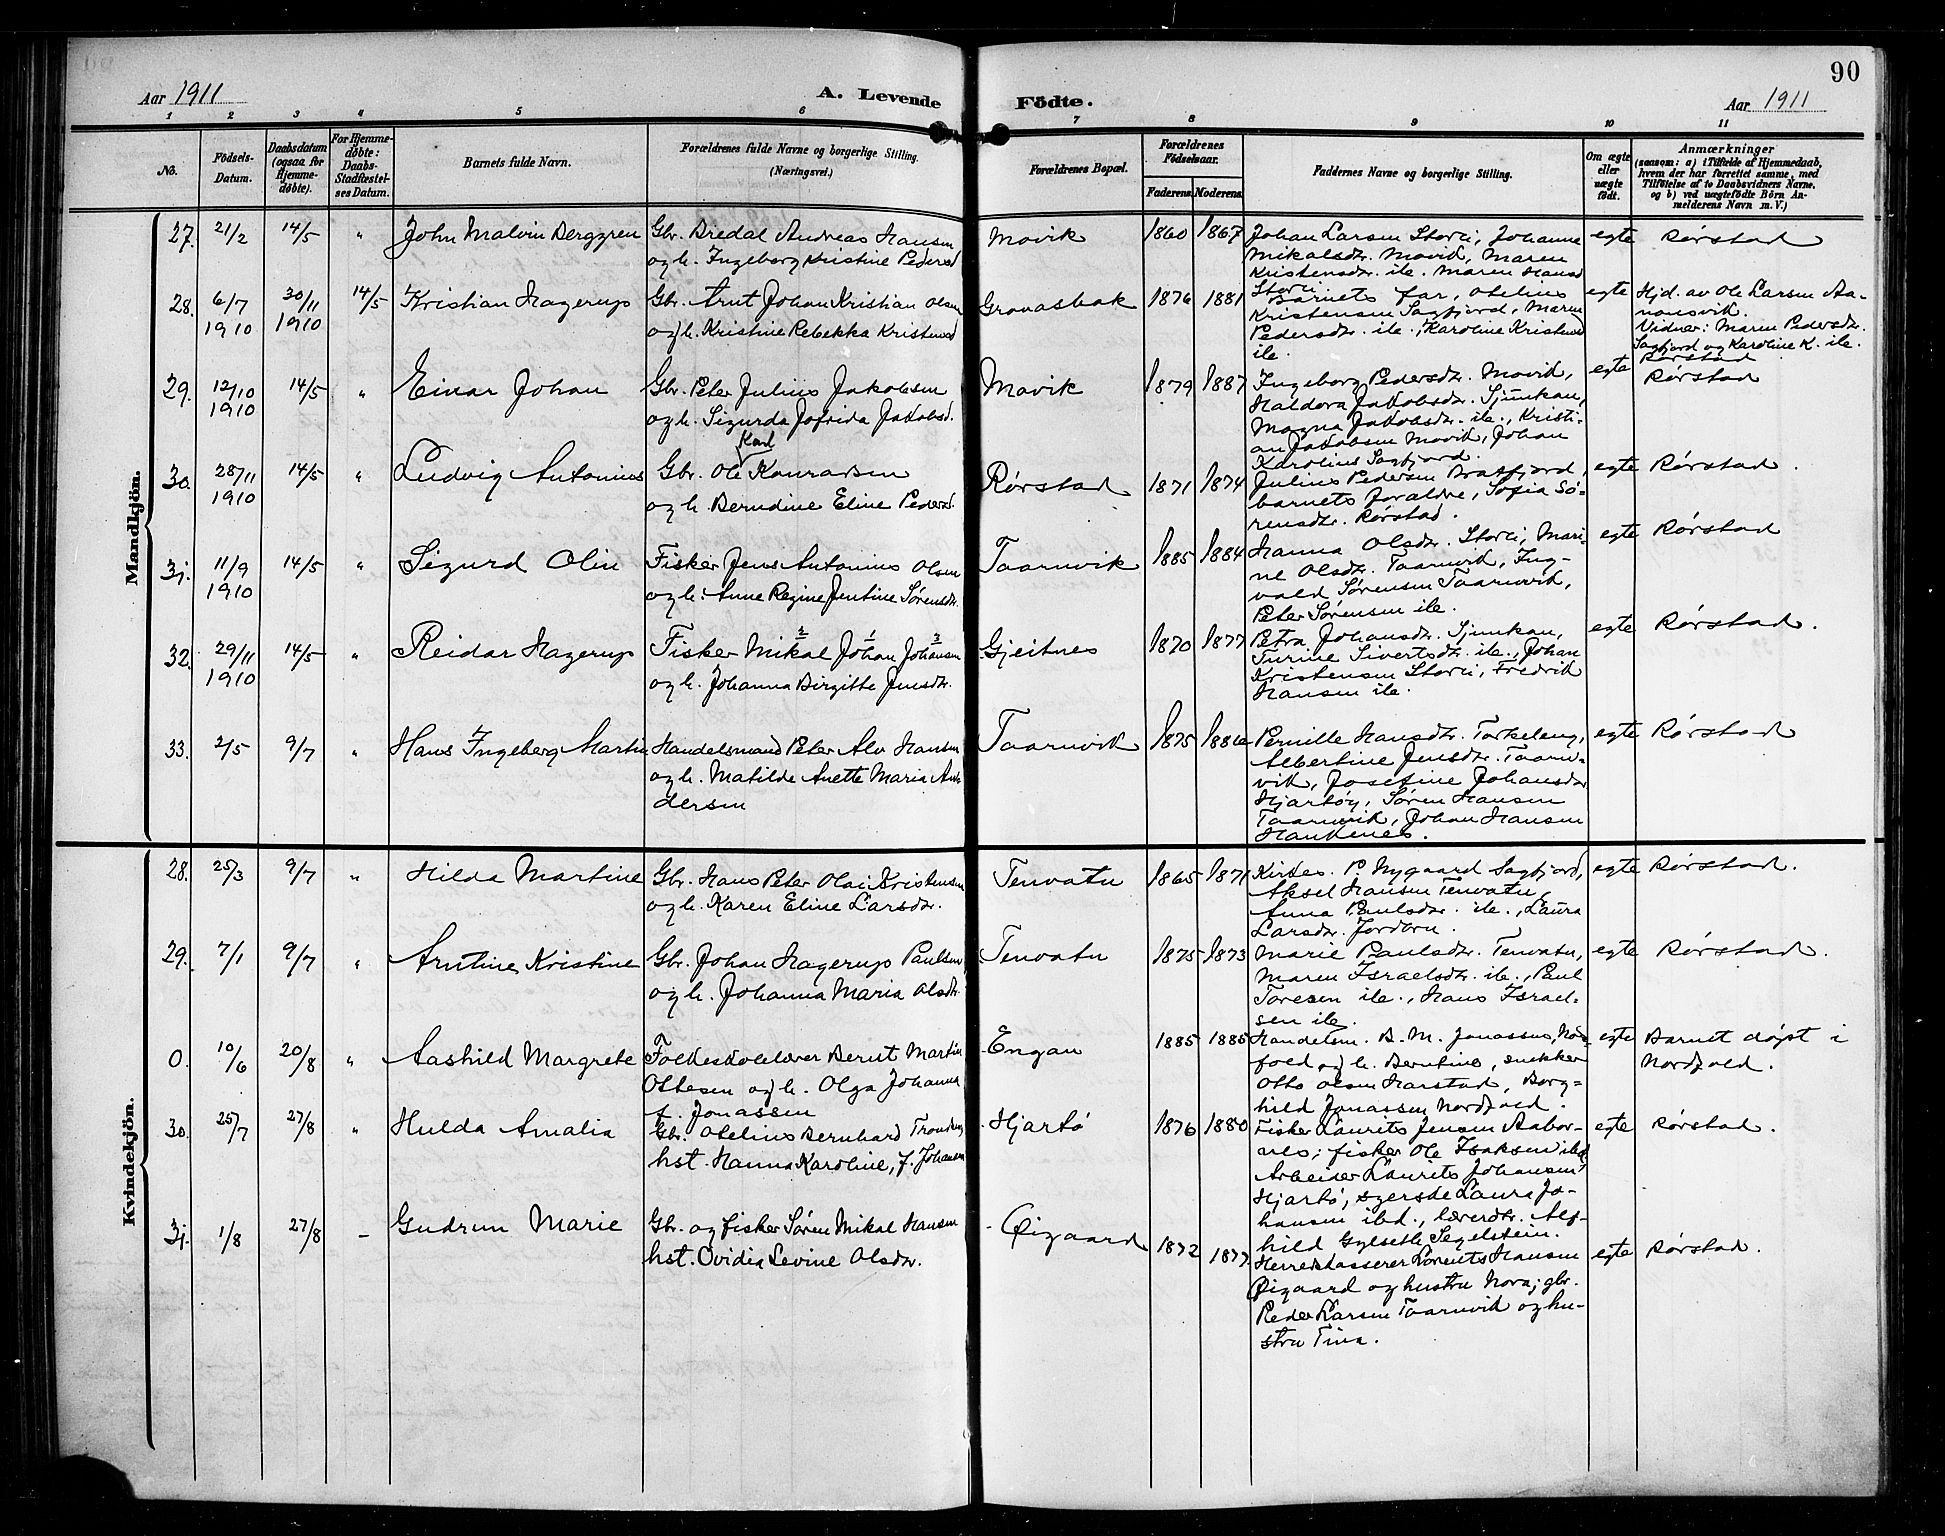 90
Aar 1911
A. Levende Födte.
Aar 1911
1 2 3 4 5 6 7 8 9 10 11
No.
Födsels-Datum.
Daabsdatum (ogsaa for Hjemmedöbte).
For Hjemmedöbte: Daabs-Stadfæstelses Datum.
Barnets fulde Navn.
Forældrenes fulde Navne og borgerlige Stilling.
(Næringsvei.)
Forældrenes Bopæl.
Forældrenes Födselsaar.
Faderens. Moderens.
Faddernes Navne og borgerlige Stilling.
Om ægte eller uægte födt.
Anmærkninger
(saasom: a) i Tilfælde af Hjemmedaab,
hvem der har forrettet samme, med
Tilföielse af to Daabsvidners Navne,
og b) ved uægtefödte Börn Anmelderens Navn m. V.)
Mandkjön.
27. 21/2 14/5 " John Malvin Berggren
Gbr. Bredal Andreas Hansen
og h. Ingeborg Kristine Pedersd
Movik 1860 1867
Johan Larsen Storli, Johanne
Mikalsdr. Movik, Maren
Kristensdr. ile. Maren Hansd
Storli
egte Rørstad
28. 6/7 1910 30/11 1910 14/5 Kristian Hagerup
Gbr. Arnt Johan Kristian Olsen
og h. Kristine Rebekka Kristensd
Gronasbak 1876 1881
Barnets far, Otelius
Kristensen Sagfjord, Maren
Pedersdr. ile., Karoline Kristensd
ile.
egte Hjd. av Ole Larsen Aa-
nonsvik.
Vidner: Maren Pedersdr.
Sagfjord og Karoline K. ile.
Rørstad
29. 12/10 1910 14/5 " Einar Johan
Gbr. Peter Julius Jakobsen
og h. Sigurda Jofrida Jakobsd.
Movik 1879 1887
Ingeborg Pedersdr. Movik,
Haldora Jakobsdr. Sjunkan,
Magna Jakobsdr. ile., Kristi-
an Jakobsen Movik, Johan
Karolius Sagfjord.
egte Rørstad
30. 28/11 1910 14/5 " Ludvig Antonius
Gbr. Ole Karl Konradsen
og h. Berndine Eline Pedersd.
Rørstad 1871 1874
Julius Pedersen Bratfjord,
barnets foraldre, Sofia Sø-
rensdr. Rørstad.
egte Rørstad.
31. 11/9 1910 14/5 " Sigurd Olin
Fisker Jens Antonius Olsen
og h. Anne Regine Jentine Sørensdr.
Taarnvik 1885 1884
Hanna Olsdr. Storli, Mari-
ne Olsdr. Taarnvik, Ing-
vald Sørensen Taarnvik,
Peter Sørensen ile.
egte Rørstad
32. 29/11 1910 14/5 " Reidar Hagerup
Fisker Mikal Johan Johansen
2 1 3
og h. Johanna Birgitte Jensdr.
Gjeitnes 1870 1877
Petra Johansdr. Sjunkan,
Surine Sivertsdr. ile., Johan
Kristensen Storli, Fredrik
Hansen ile.
egte Rørstad.
33. 2/5 9/7 " Hans Ingeberg Martin
Handelsmand Peter Alv Hansen
og h. Matilde Anette Maria An-
dersen
Taarnvik 1875 1886
Pernille Hansdr. Torkeleng,
Albertine Jensdr. Taarn-
vik, Josefine Johansdr
Hjartøy, Søren Hansen
Taarnvik, Johan Hansen
Haukenes.
egte Rørstad
Kvindekjön.
28. 25/3 9/7 " Hilda Martine
Gbr. Hans Peter Olai Kristensen
og h. Karen Eline Larsdr.
Tenvatn 1865 1871
Kirkes. P. Nygaard Sagfjord,
Aksel Hansen Tenvatn,
Anna Paulsdr. ile., Laura
Larsdr. Jordbru.
egte Rørstad.
29. 7/1 9/7 " Arntine Kristine
Gbr. Johan Hagerup Paulsen
og h. Johanna Maria Olsdr.
Tenvatn 1875 1873
Marie Paulsdr. Tenvatn,
Maren Israelsdr. ile., Paul
Toresen ile., Hans Israel-
sen ile.
egte Rørstad.
0. 10/6 20/8 " Aashild Margrete
Folkeskolelærer Bernt Martin
Ottesen og h. Olga Johanna
f. Jonassen
Engan 1885 1885
Handelsm. B. M. Jonassen, Nord-
fold og h. Berntine, snekker
Otto Olsen Harstad, Borg-
hild Jonassen Nordfold.
egte Barnet døpt i
Nordfold.
30. 25/7 27/8 " Hulda Amalia
Gbr. Otelius Bernhard Trondsen
hst. Hanna Karoline, f. Johansen
Hjartö 1876 1880
Fisker Laurits Jensen Aabor-
nes; fisker Ole Isaksen ibd.
Arbeider Laurits Johansen
Hjartö, syerske Laura Jo-
hansen ibd., lærerdr. Alf-
hild Gylseth Segelstein.
egte Rørstad.
31. 1/8 27/8 - Gudrun Marie
Gbr. og fisker Søren Mikal Hansen
hst. Ovidia Levine Olsdr.
Øigaard 1872 1877
Herredskasserer Lorents Hansen
Øigaard og hustru Nora; gbr.
Peder Larsen Taarnvik og hu-
stru Tina.
egte Rørstad.